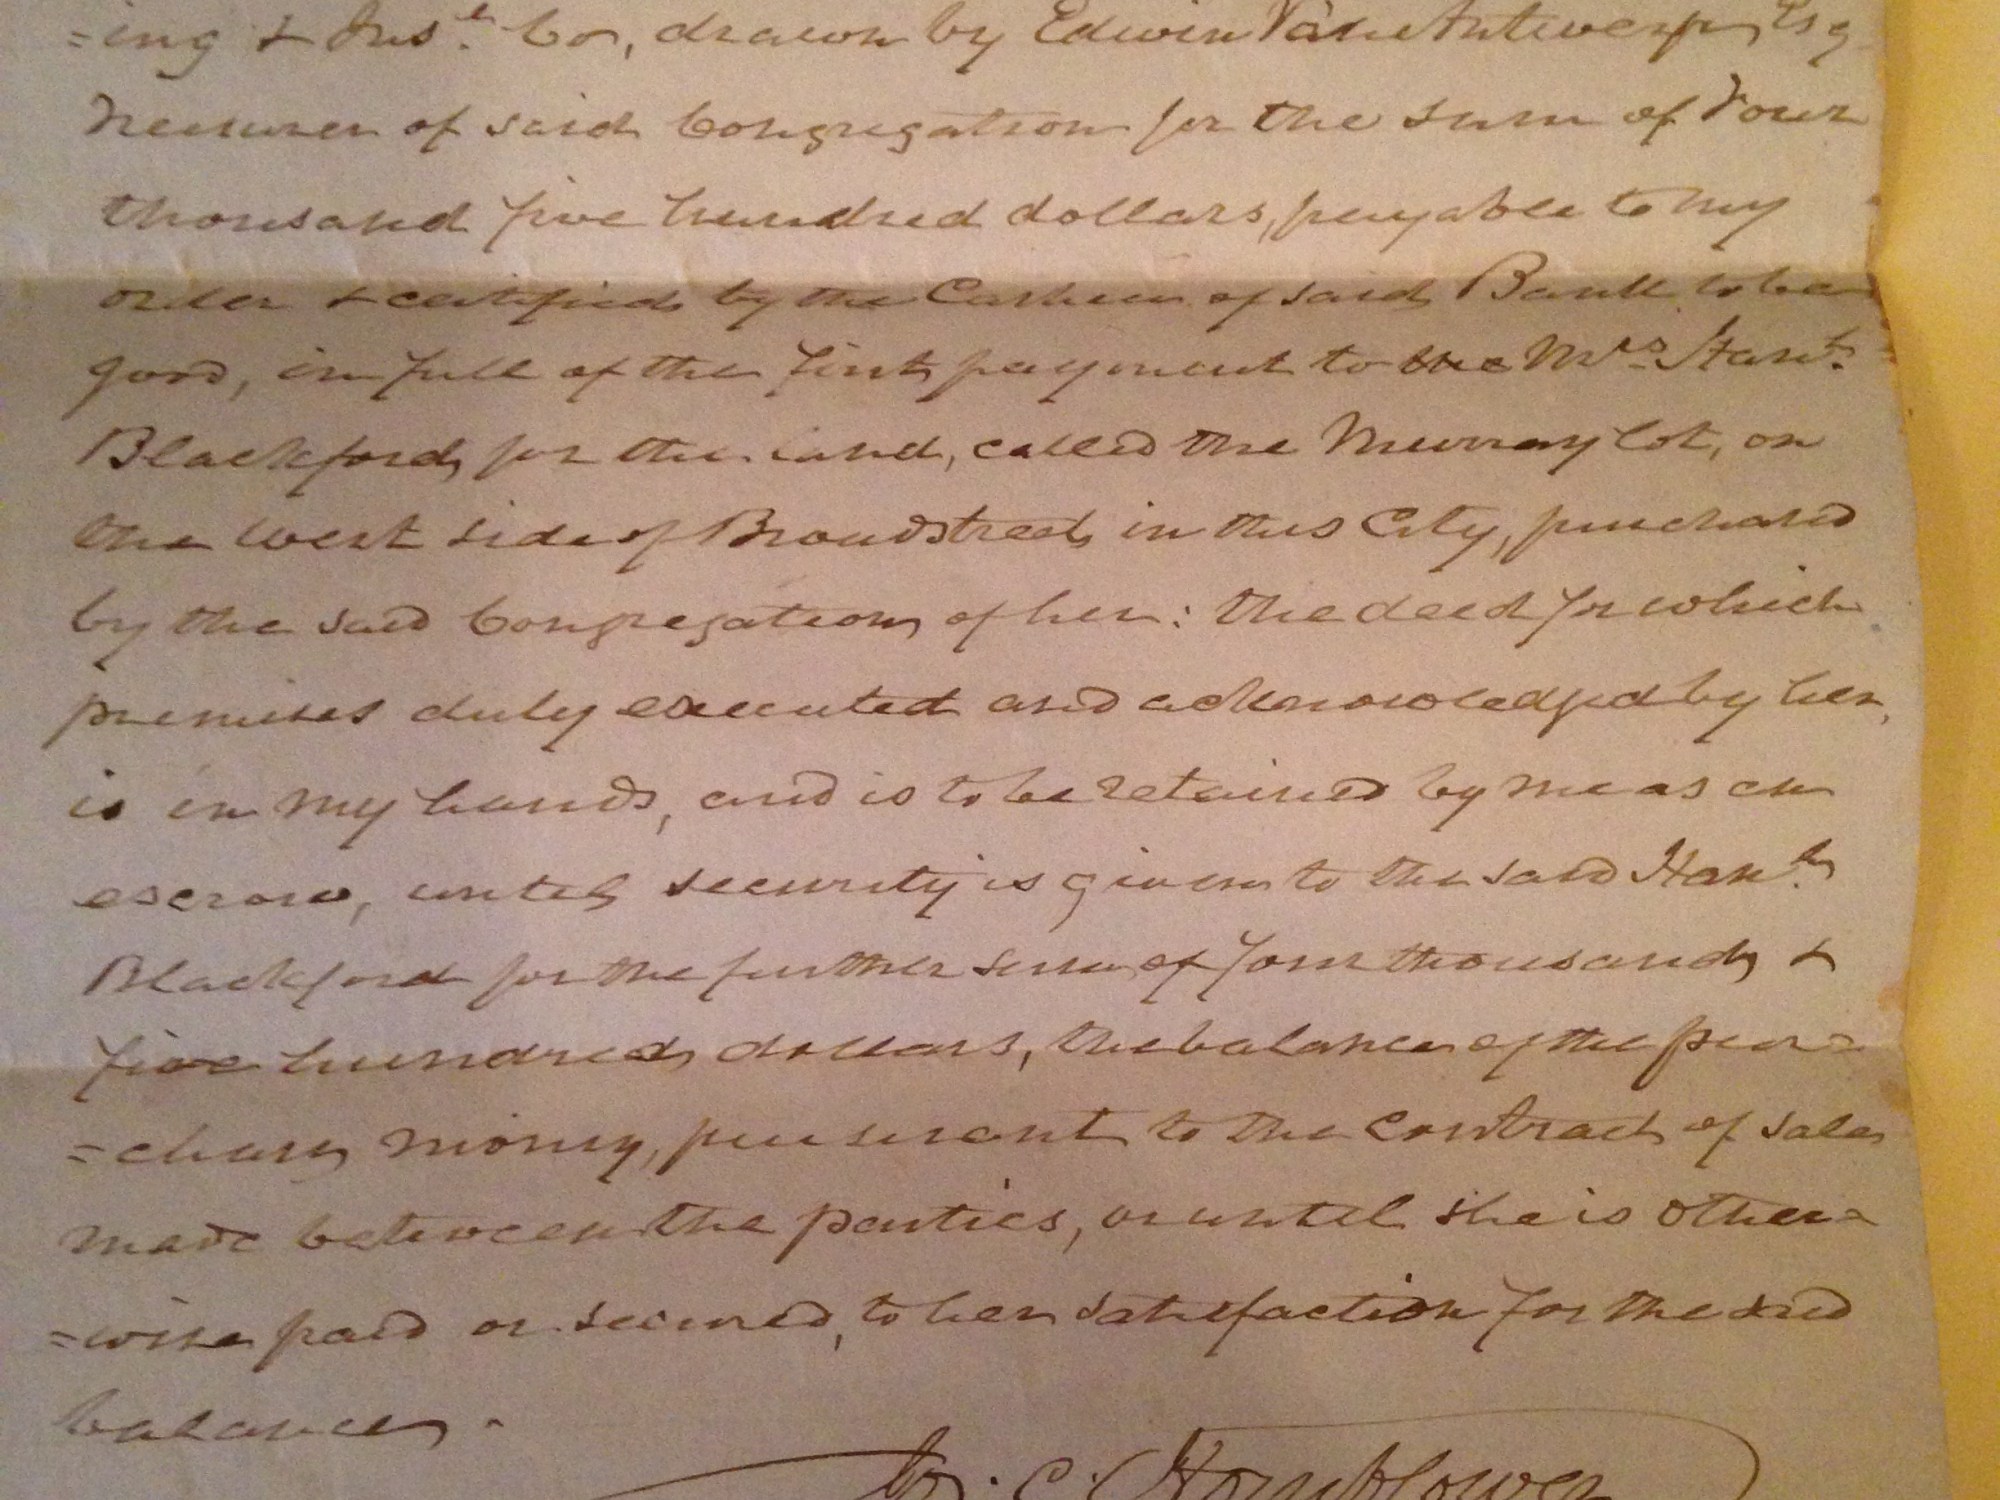 =ing & Ins.^e Co, drawn by Edwin Van Antwerp, Esq
Treasurer of said Congregation for the sum of Four
thousand five hundred dollars, payable to my
order & certified by the Cashier of said Bank to be
good, in full of the first payment to the Mrs. Han.^h
Blackford, for the land, called the Murray lot, on
the west side of Broadstreet, in this City, purchased
by the said Congregation, of her: the deed for which
premises duly executed and acknowledged by her,
is in my hands, and is to be retained by me as an
escrow, until security is given to the said Han.^h
Blackford for the further sum, of four thousand, &
five hundred, dollars, the balance of the pur=
=chase money, pursuant to the contract of sale,
made between the parties, or until she is other=
=wise paid or secured, to her satisfaction for the said
balance.
C. Hornblower